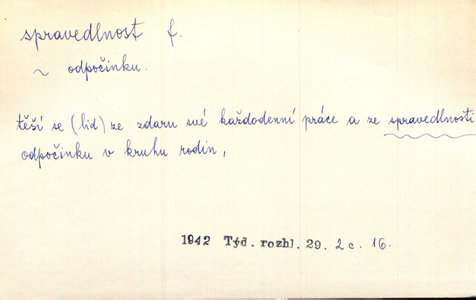 spravedlnost f.
~ odpočinku.
těší se (lid) ze zdaru své každodenní práce a ze spravedlnosti
odpočinku v kruhu rodin,
1942 Týd. rozhl. 29. 2 c. 16.